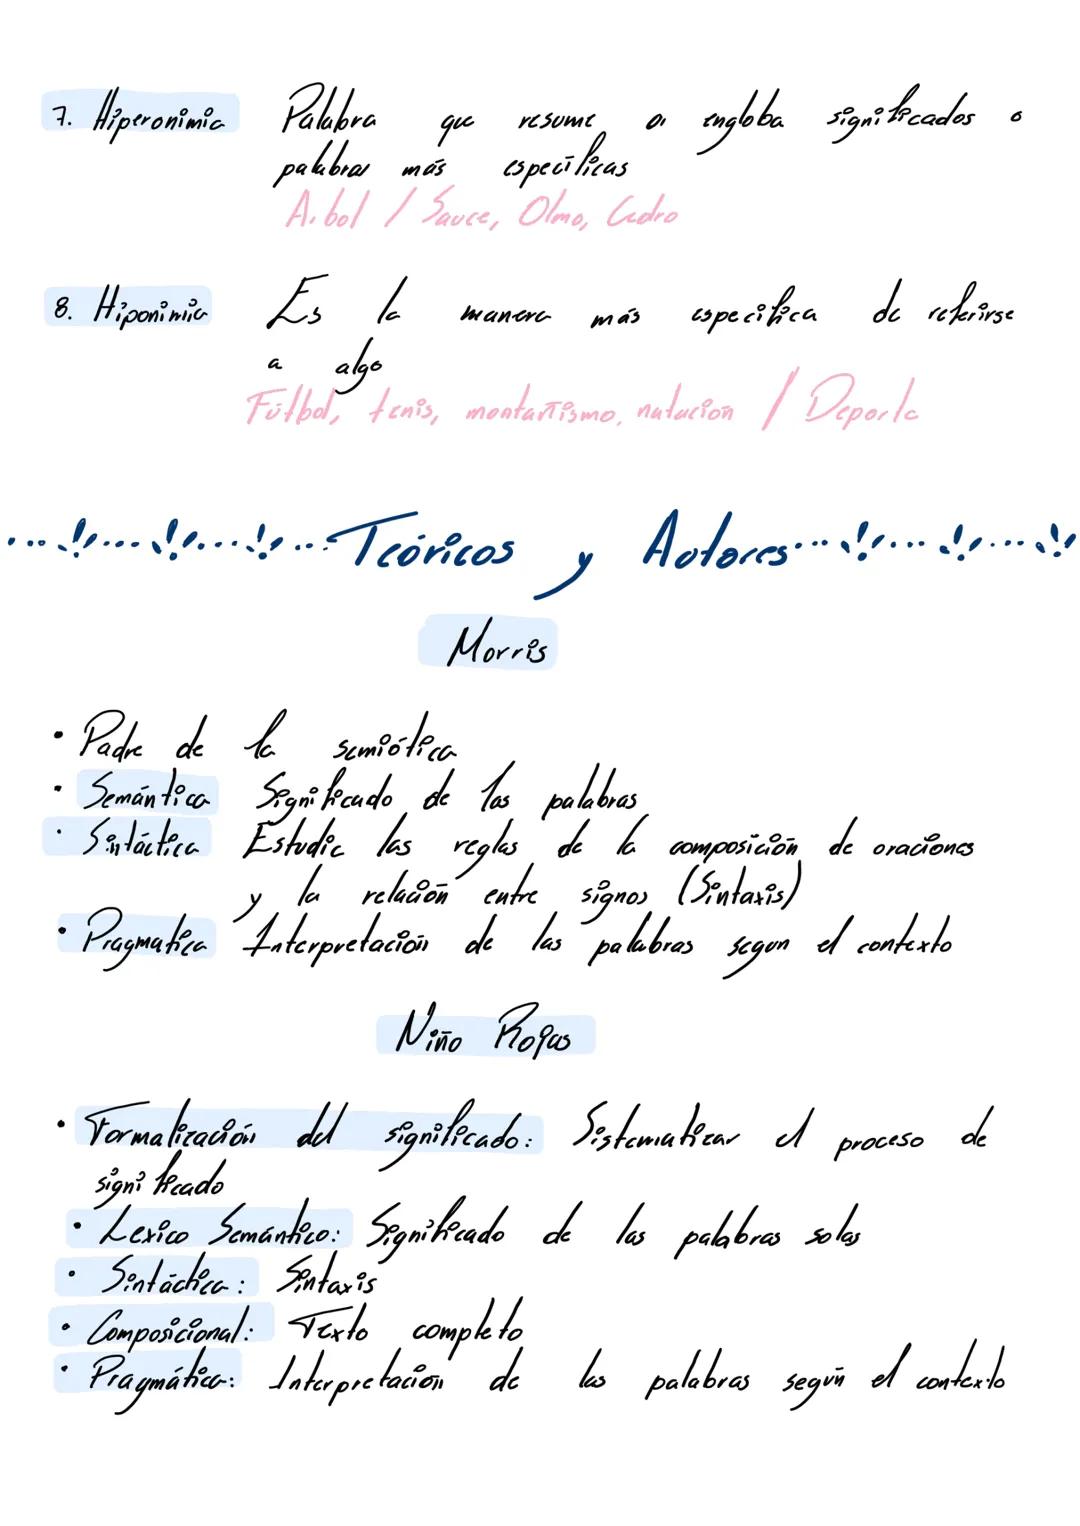 7. Hiperonimia Palabra que resume o engloba significados o
palabras más específicas
Arbol / Sauce, Olmo, Cedro
8. Hiponimia Es la manera más especifica de referirse
a algo
Fútbol, tenis, montañismo, natación / Deporte
Teóricos y Autores
Morris
• Padre de la semiótica
• Semántica Significado de las palabras
• Sintáctica Estudia las reglas de la composición de oraciones
y la relación entre signos (Sintaxis)
• Pragmatica Interpretación de las palabras segun el contexto
Niño Rojas
• Formalización del significado: Sistematizar el proceso de
significado
• Lexico Semántico: Significado de las palabras solas
• Sintáctica: Sintaxis
• Composicional: Texto completo
• Pragmática: Interpretación de las palabras según el contexto